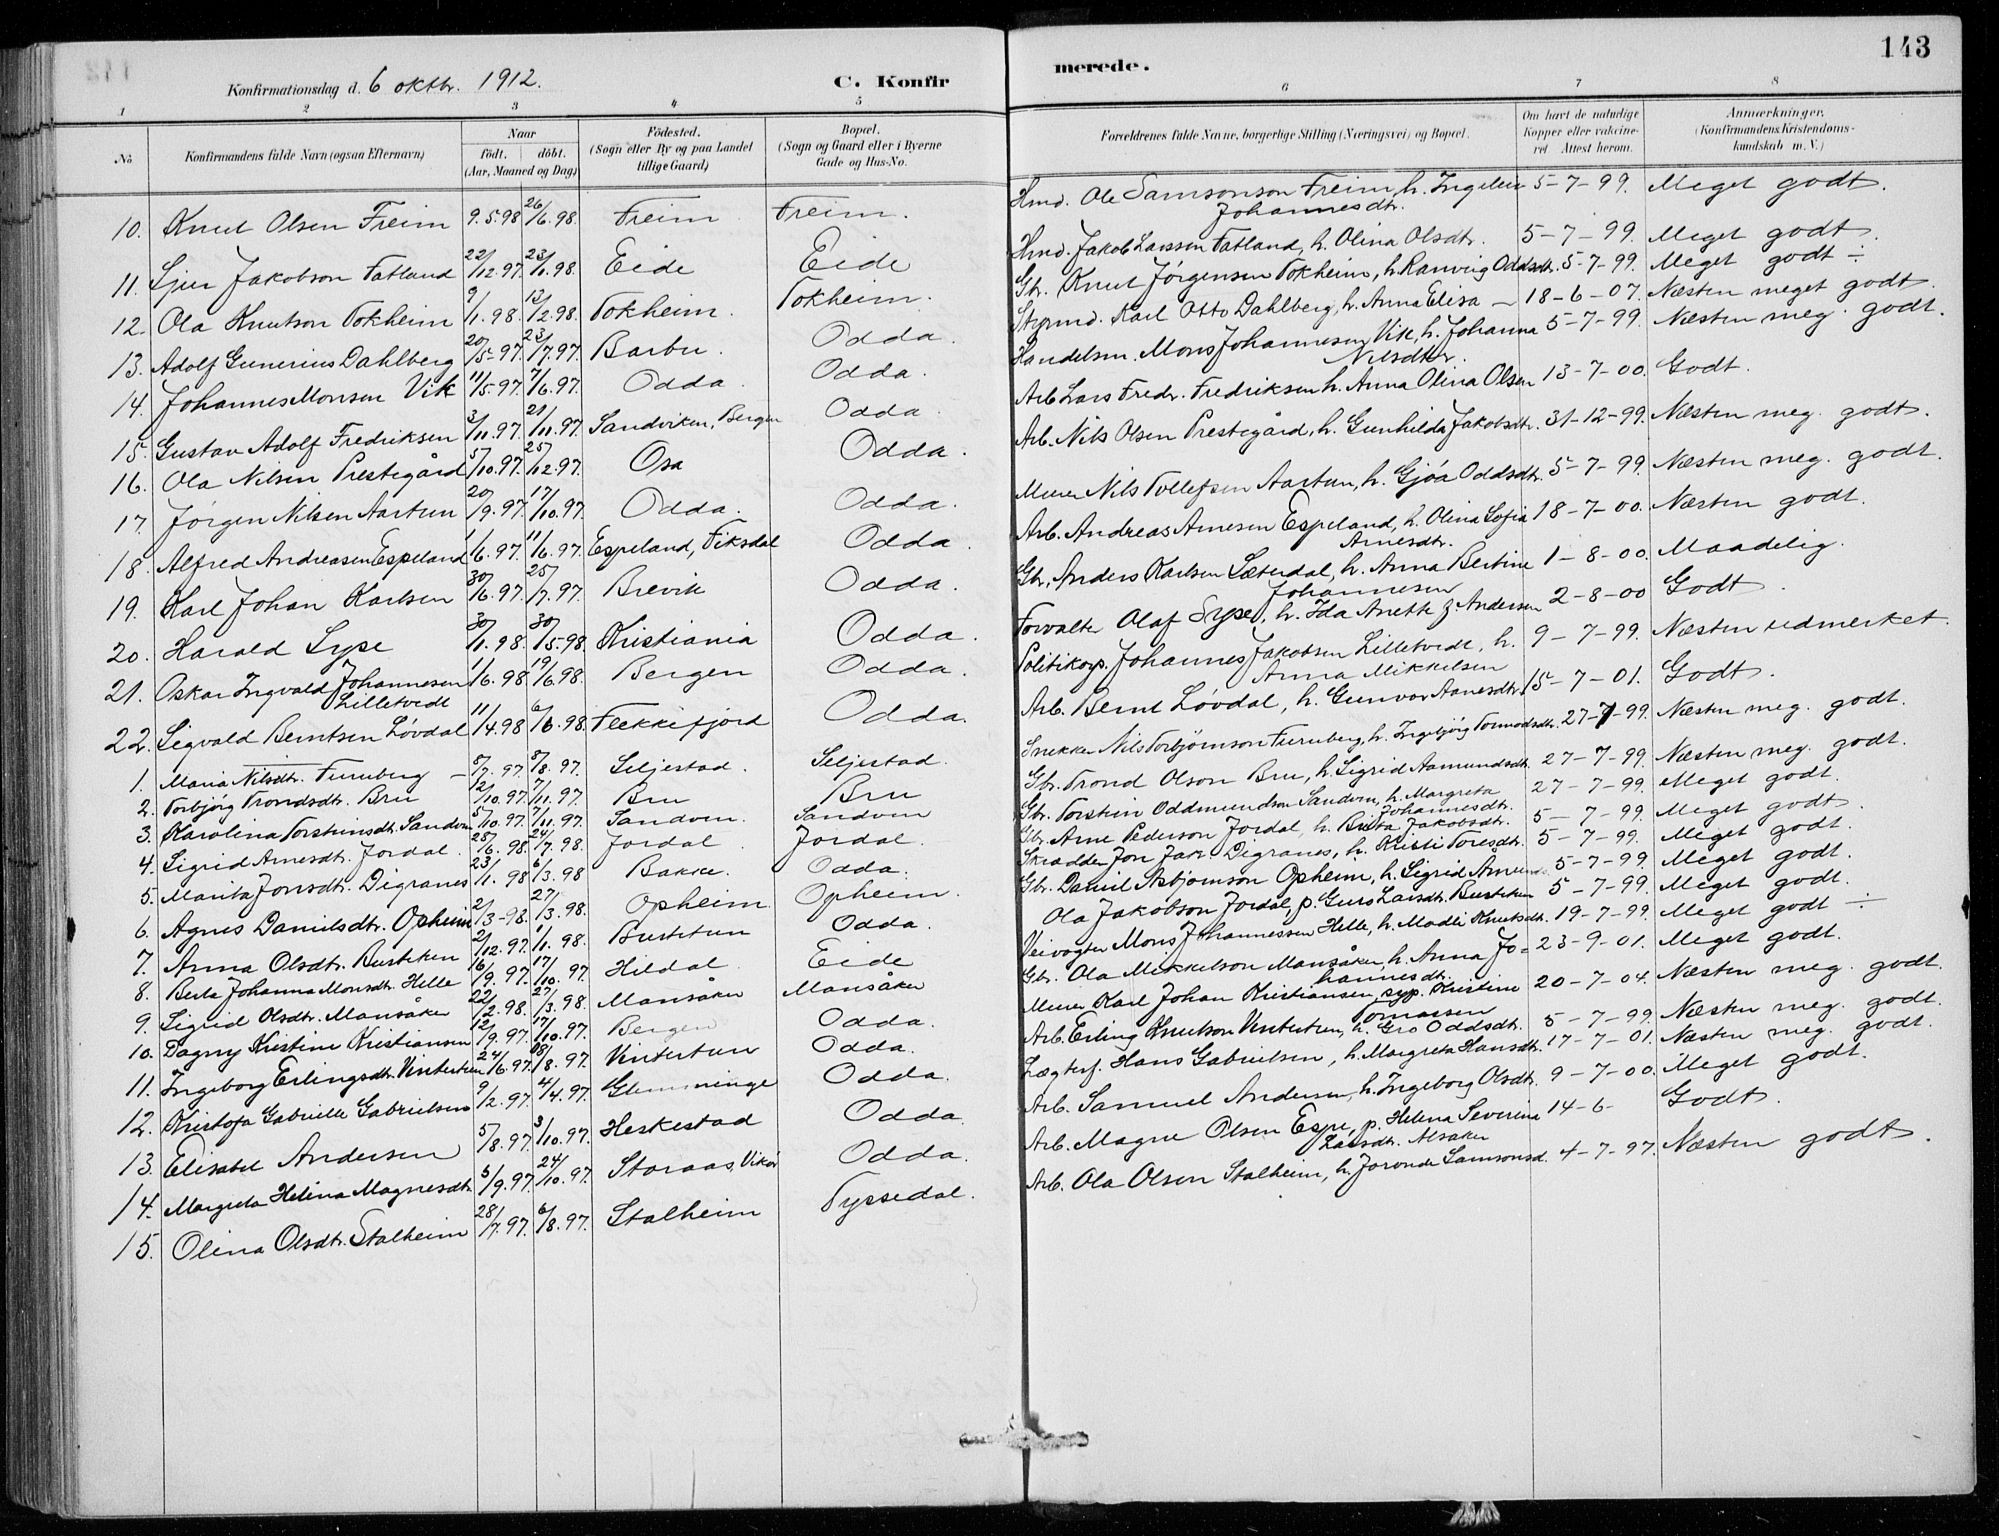 143
Konfirmationsdag d. 6 oktbr. 1912.
C. Konfirmerede.
1 2 3 4 5 6 7 8
No
Konfirmandens fulde Navn (ogsaa Efternavn)
Naar
födt. döbt.
(Aar, Maaned og Dag)
Födested.
(Sogn eller By og paa Landet
tillige Gaard)
Bopæl.
(Sogn og Gaard eller i Byerne
Gade og Hus-No.
Forældrenes fulde Navne, borgerlige Stilling (Næringsvei) og Bopæl.
Om havt de naturlige
Kopper eller vakcine-
ret. Attest herom.
Anmærkninger.
(Konfirmandens Kristendoms-
kundskab m. V.)
10. Knut Olsen Freim 9.5.98 26/6.98. Freim Freim. Hmd. Ole Samsonson Freim, h. Ingeleiv Johannesdtr. 5-7-99. Meget godt.
11. Sjur Jakobson Fatland 22/12.97. 23/1.98. Eide Eide Hmd. Jakob Larssen Fatland, h. Olina Olsdtr. 5-7-99. Meget godt.
12. Ola Knutson Tokheim 9/1.98. 13/2.98. Tokheim. Tokheim. Gbr. Knut Jørgensen Tokheim, h. Ranveig Oddsdtr. 5-7-99. Meget godt ÷
13. Adolf Gunerius Dahlberg 20/5.97. 23/7.97. Barbu. Odda. Styrmd. Karl Otto Dahlberg, h. Anna Elisa — 18-6-07. Næsten meget godt.
14. Johannes Monsen Vik 11/5.97. 7/6.97. Odda. Odda. Handelsm. Mons Johannesen Vik, h. Johanna Nilsdtr. 5-7-99. Næsten meg. godt.
15. Gustav Adolf Fredriksen 3/11.97. 21/11.97. Sandviken, Bergen Odda. Arb. Lars Fredr. Fredriksen h. Anna Olina Olsen 13-7-00. Godt.
16. Ola Nilsen Prestegård 5/10.97. 25/12.97. Osa Odda. Arb. Nils Olsen Prestegård, h. Gunhilda Jakobsdtr. 31-12-99. Næsten meg. godt.
17. Jørgen Nilsen Aartun 20/9.97. 17/10.97. Odda. Odda. Murer Nils Tollefsen Aartun, h. Gjøa Oddsdtr. 5-7-99 Næsten meg. godt.
18. Alfred Andreasen Espeland 1/6.97. 11/6.97. Espeland, Fiksdal Odda. Arb. Andreas Arnesen Espeland, h. Olina Sofia Arnesdtr. 18-7-00. Næsten godt.
19. Karl Johan Karlsen 30/6.97. 25/7.97. Brevik Odda. Gbr. Anders Karlsen Sæterdal, h. Anna Bertine Johannesen 1-8-00. Maadelig.
20. Harald Sype 30/1.98. 30/5.98. Kristiania Odda. Forvalter Olaf Sype, h. Ida Anette f. Andersen 2-8-00 Godt.
21. Oskar Ingvald Johannesen Lilletvedt 1/6.98. 19/6.98. Bergen Odda. Politikop. Johannes Jakobsen Lilletvedt, h. Anna Mikkelsen 9-7-99. Næsten udmerket.
22. Sigvald Berntsen Løvdal 11/4.98 6/6.98. Flekkefjord Odda. Arb. Bernt Løvdal, h. Gunvor Aanesdtr. 15-7-01. Godt.
1. Maria Nilsdtr. Furuberg — 5/7.97. 8/8.97. Seljestad. Seljestad. Snekker Nils Torbjørnson Furuberg, h. Ingebjørg Tormodsdtr. 27-7-99. Næsten meg. godt.
2. Torbjørg Trondsdtr. Bru 12/10.97. 7/11.97. Bru Bru Gbr. Trond Olson Bru, h. Sigrid Aamundsdtr. 27-7-99. Næsten meg. godt.
3. Karolina Torsteinsdt. Sandven 5/10.97. 7/11.97. Sandven. Sandven Gbr. Torstein Oddmundson Sandven, h. Margreta Johannesdtr. 27-7-99. Meget godt.
4. Sigrid Arnesdtr. Jordal. 25/6.98. 24/7.98. Jordal Jordal. Gbr. Arne Pederson Jordal, h. Brita Jakobsdtr. 5-7-99. Meget godt.
5. Marita Jonsdtr. Digranes 23/1.98 6/3.98 Bakke. Odda. Skrædder Jon Jak. Digranes, h. Kristi Toresdtr. 5-7-99. Meget godt.
6. Agnes Danielsdtr. Opheim 2/3-98. 27/3.98. Opheim Opheim. Gbr. Daniel Asbjørnson Opheim, h. Sigrid 5-7-99 Meget godt.
7. Anna Olsdtr. Busteten 2/12.97. 1/1.98. Bustetun Odda. Ola Jakobson Jordal, p. Guro Larsdtr. Busteten 5-7-99. Meget godt.
8. Berta Johanna Monsdtr. Helle 16/9.97. 17/10.97. Hildal Eide Veivogter Mons Johannessen Helle, h. Madli Knutsdtr. 19-7-99. Meget godt ÷
9. Sigrid Olsdtr. Mansåker 22/2.98. 27/3.98. Mansåker Mansåker Gbr. Ola Mikkelson Mansåker, h. Anna Johannesdtr. 23-9-01. Meget godt.
10. Dagny Kristine Kristiansen 12/9.97. 17/10.97. Bergen Odda. Murer Karl Johan Kristiansen, syp. Kristine Tomassen 20-7-04. Næsten meg. godt.
11. Ingeborg Erlingsdtr. Vintertun 24/6.97. 08/8.97. Vintertun Odda. Arb. Erling Knutson Vintertun, h. Gro Oddsdtr. 5-7-99. Næsten meg. godt.
12. Kristofa Gabrielle Gabrielsen 9/2.97. 4/4.97. Glemminge Odda. Lægterf. Hans Gabrielsen, h. Margreta Hansdtr. 17-7-01. Næsten meg. godt.
13. Elisabet Andersen 5/8.97. 3/10.97. Heskestad Odda. Arb. Samuel Andersen, h. Ingeborg Olsdtr. 9-7-00. Meget godt.
14. Margreta Helina Magnesdtr. 5/9.97. 24/10.97. Storaas, Vikør Odda. Arb. Magne Olsen Espe, p. Helena Severine Larsdtr. Alsaker 14-6- Godt.
15. Olina Olsdtr. Stalheim 28/7.97. 6/8.97. Stalheim Tyssedal. Arb. Ola Olsen Stalheim, h. Joronda Samsonsd. 4-7-97. Næsten godt.